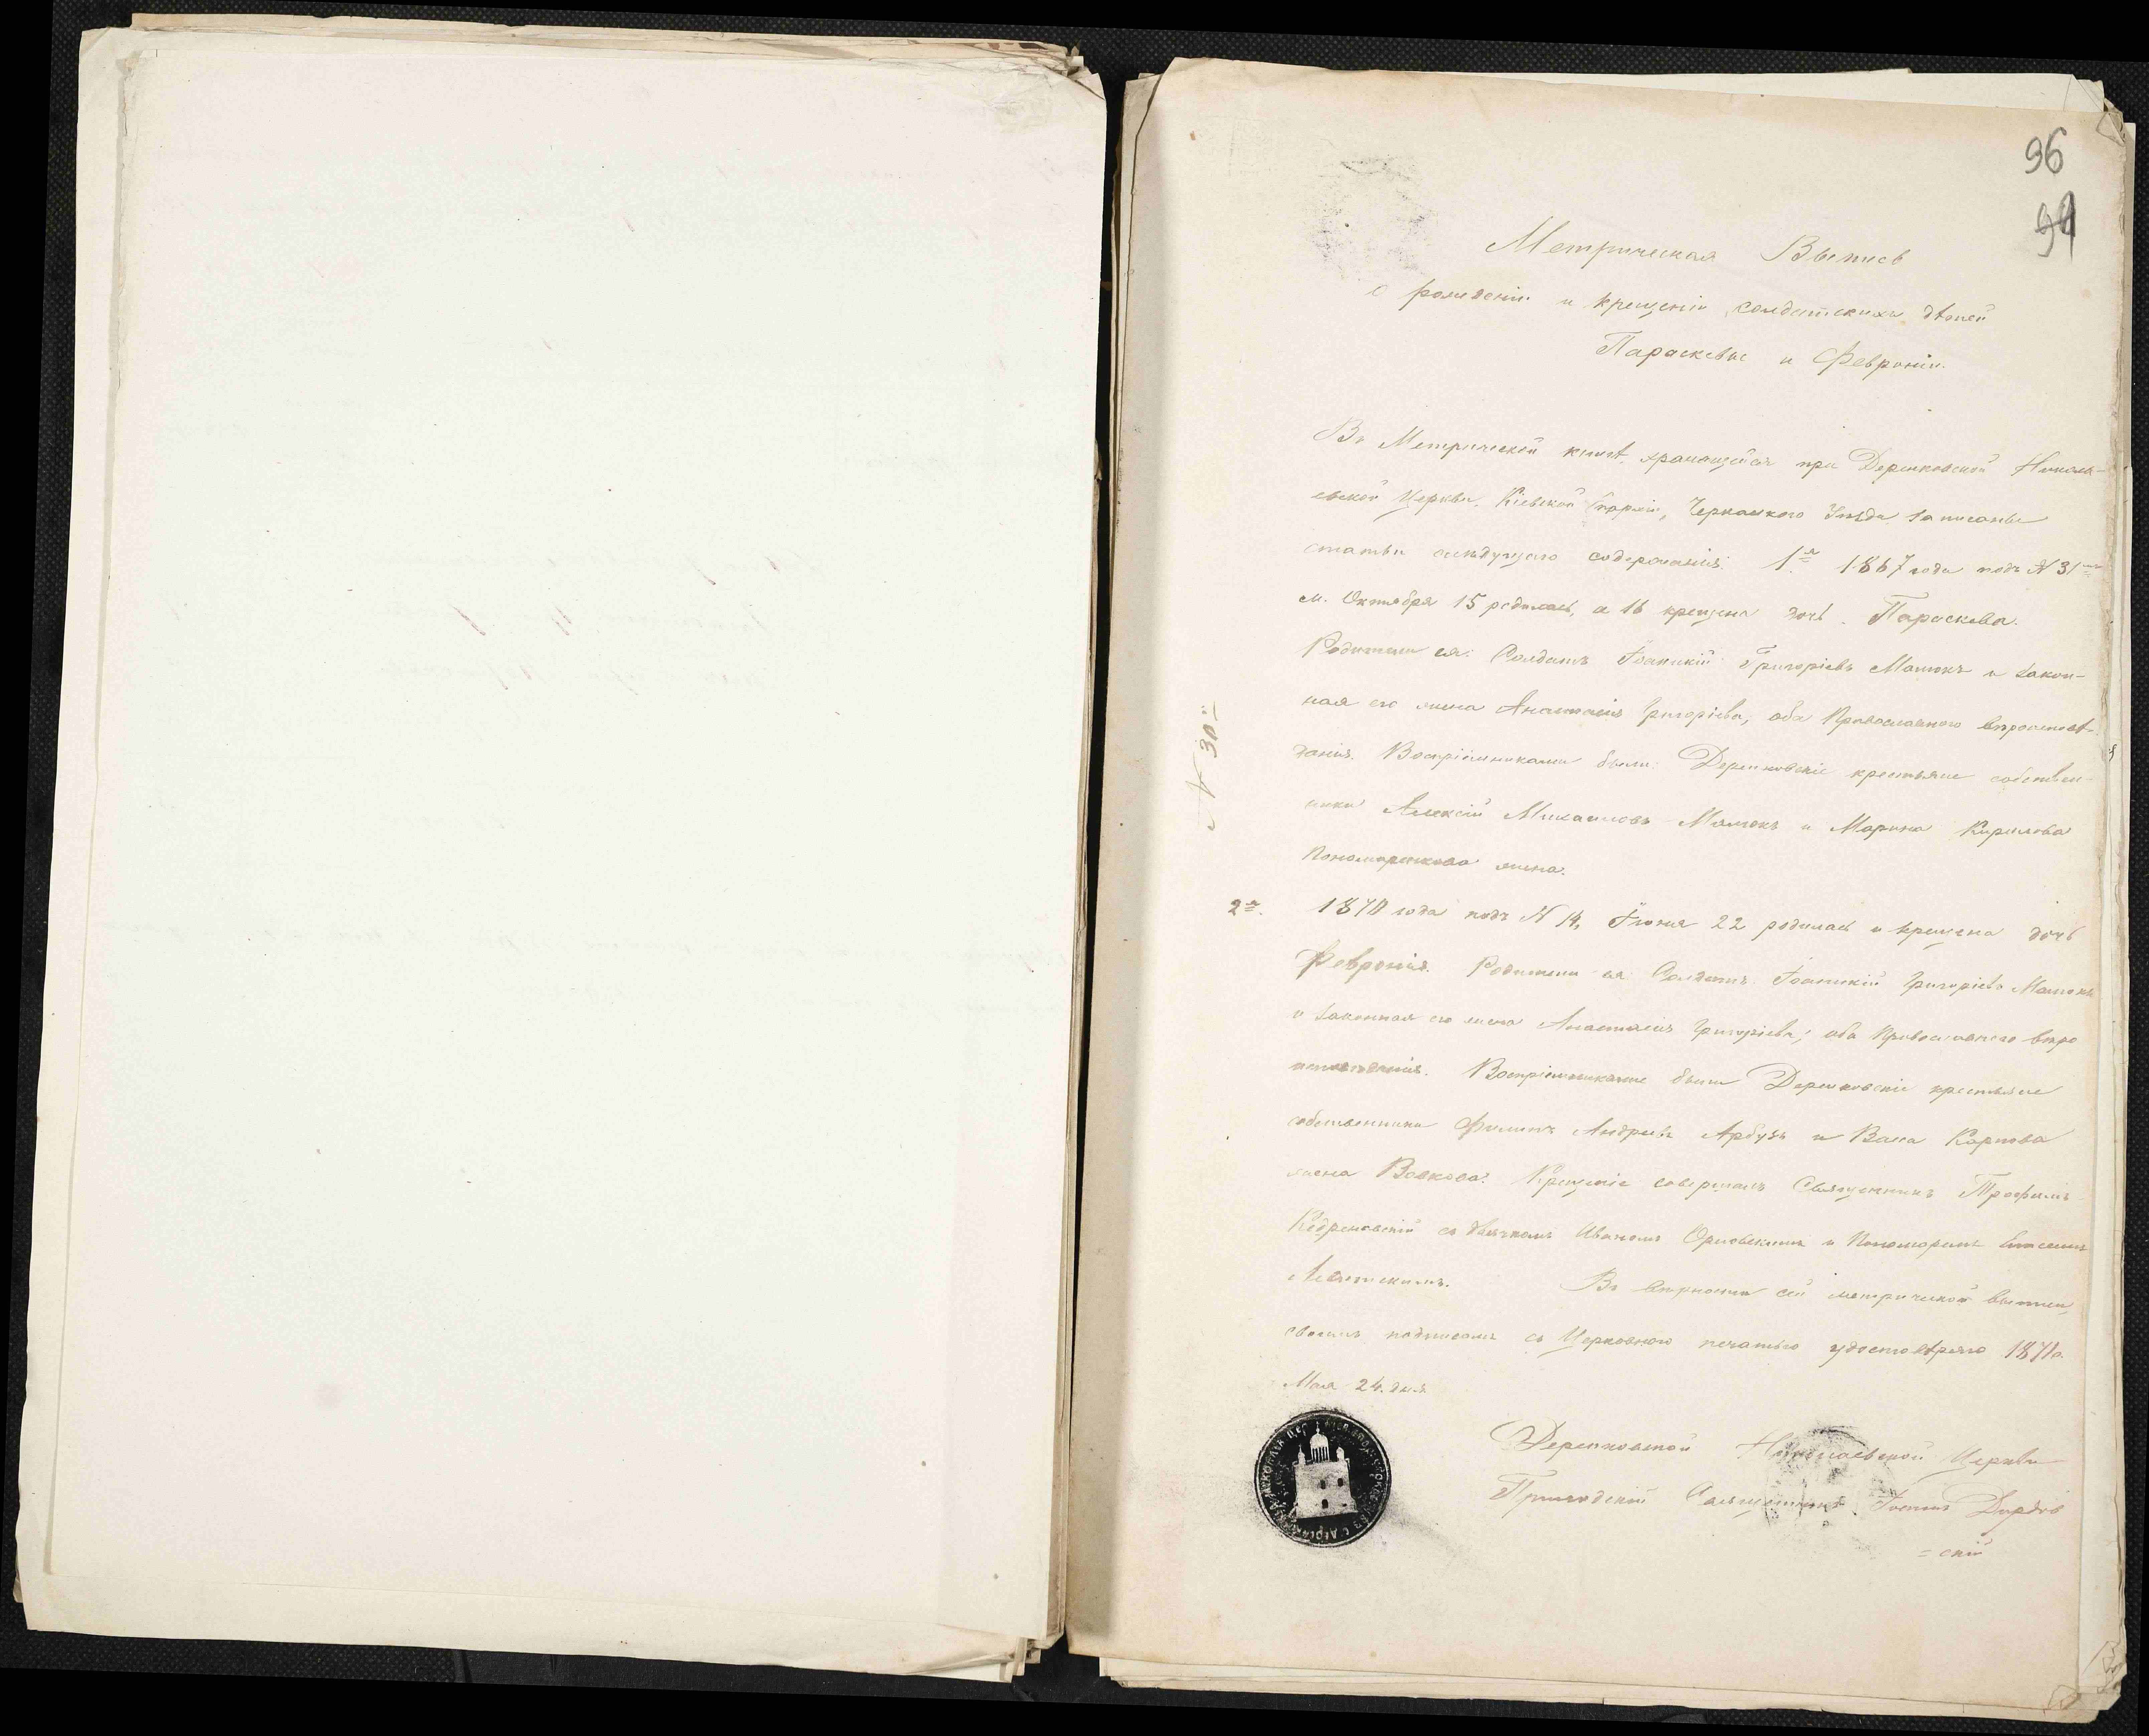 96
94
Метрическая Выпись
о рождении и крещении солдатских детей
Параскевы и Февронии.
Въ Метрической книгѣ, хранящейся при Деренковской Никола-
евской Церкви, Кіевской Епархіи, Черкаского Уѣзда записаны
статьи слѣдущаго содержанія: 1я 1867 года подъ № 31
м. Октября 15 родилась, а 16 крещена дочь Параскева.
Родители ея: Солдатъ Іоаникій Григоріевъ Малюкъ и закон-
ная его жена Анастасія Григоріева, оба Православного вѣроисповѣ-
данія. Воспріемниками были: Деренковскіе крестьяне собствен-
ники Алексій Михаиловъ Малюкъ и Марина Кирилова
Пономаренкова жена.
№ 30й
2я. 1870 года подъ № 14, Іюня 22 родилась и крещена дочь
Февронія. Родители ея Солдатъ Іоаникій Григоріевъ Малюкъ
и законная его жена Анастасія Григоріева; оба Православного вѣро
исповѣданія. Воспріемниками были Деренковскіе крестьяне
собственники Филипъ Андреевъ Арбузъ и Васса Карпова
жена Волкова. Крещеніе совершалъ Священникъ Трофимъ
съ дьячкомъ Иваномъ Орловскимъ и Пономаремъ
Въ вѣрности сей метрической выписи,
своимъ подписомъ съ Церковною печатью удостовѣряю 1871 г.
Мая 24 дня
Деренковской Николаевской Церкви
Приходской Священникъ
=скій